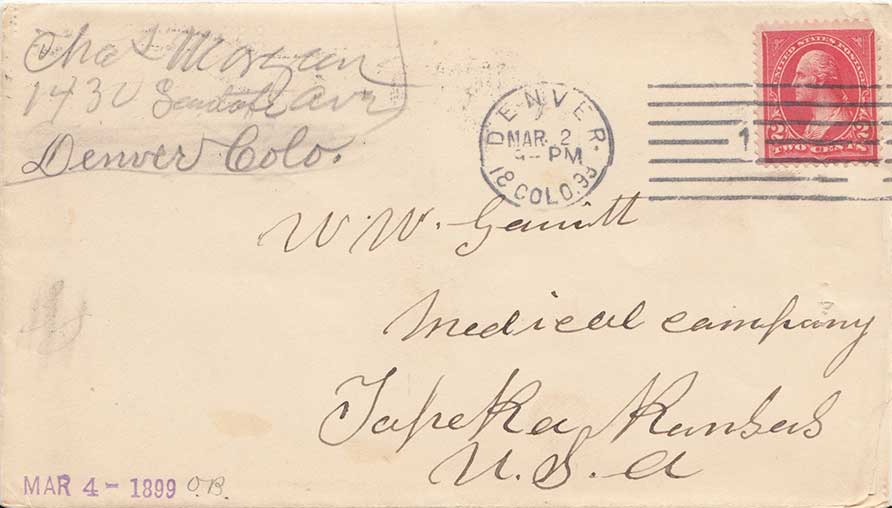 Chas Morgan
1430 Santa Fe Ave
Denver Colo.
DENVER.
MAR. 2
PM
18 COLO. 99
1
UNITED STATES POSTAGE
2 2
TWO CENTS
W. W. Gavitt
Medical company
Topeka Kansas
U. S. A
MAR 4 - 1899 O.B.